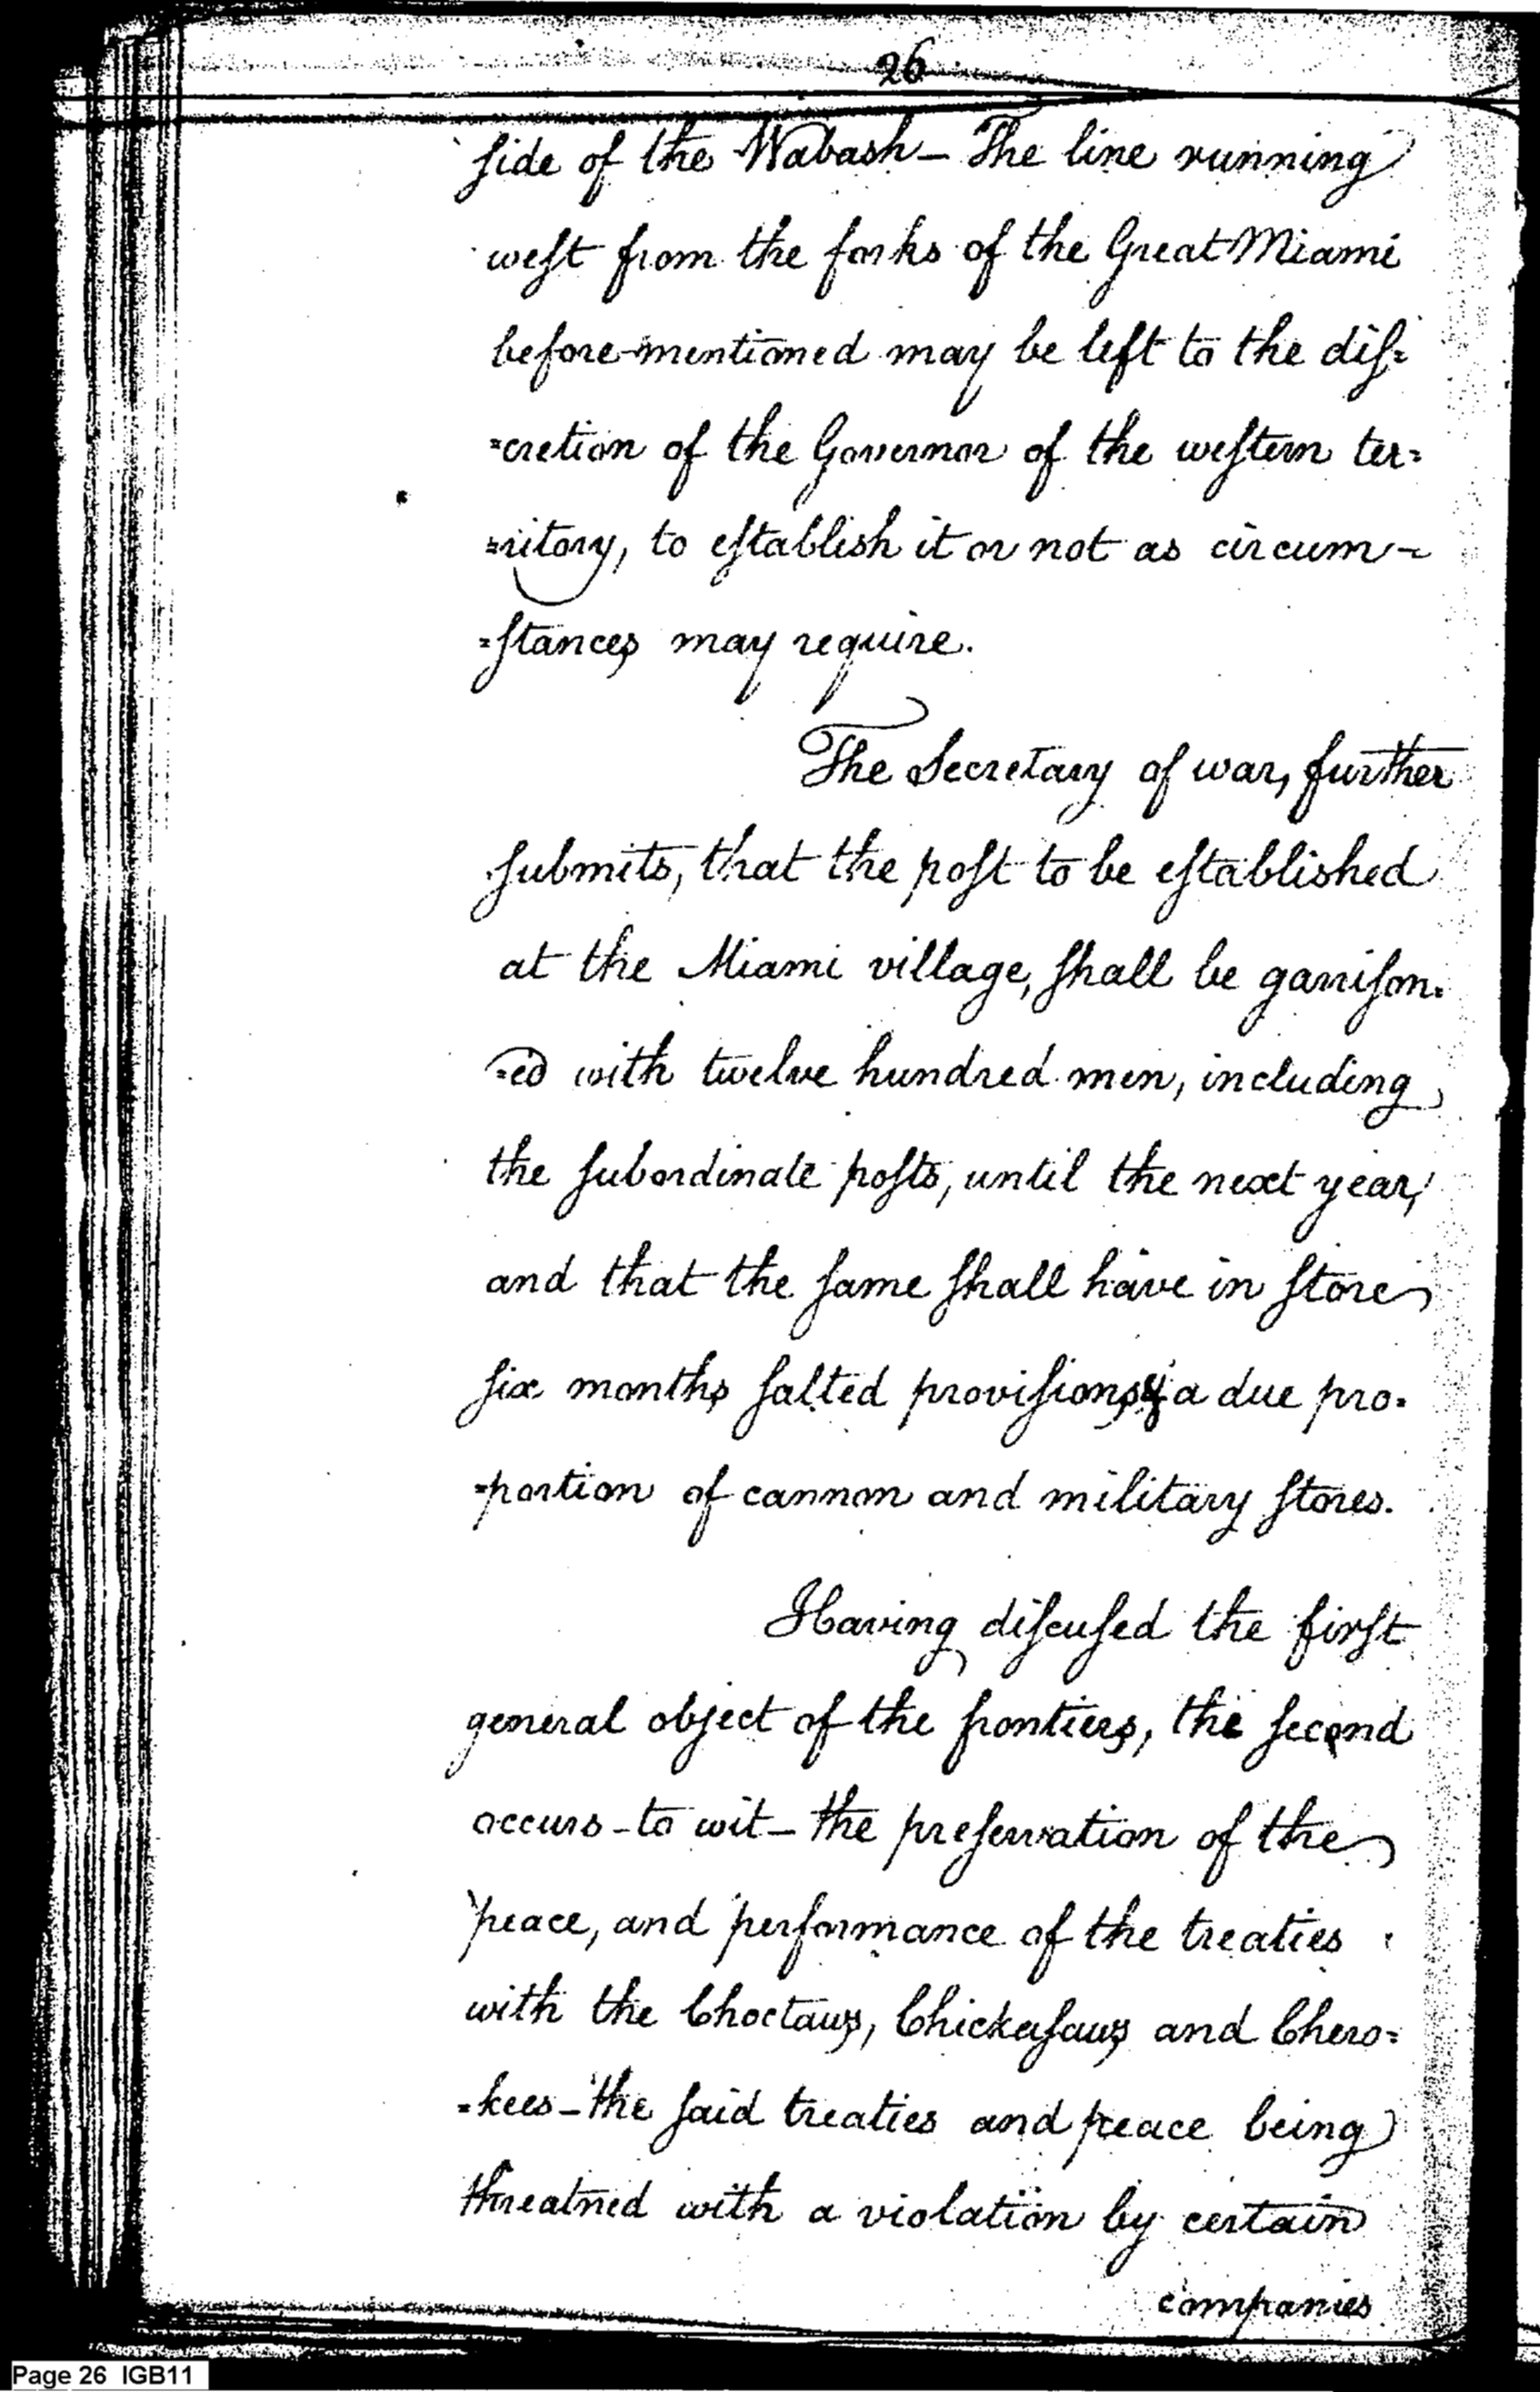 26
side of the Wabash — The line running
west from the forks of the Great Miami
before-mentioned may be left to the dis=
=cretion of the Governor of the western ter=
=ritory, to establish it or not as circum-
=stances may require.
The Secretary of war, further
submits, that the post to be established
at the Miami village, shall be garrison=
=ed with twelve hundred men, including
the subordinate posts, until the next year,
and that the same shall have in store
six months salted provisions, & a due pro=
=portion of cannon and military stores.
Having discused the first
general object of the frontiers, the second
occurs — to wit — the preservation of the
peace, and performance of the treaties
with the Choctaws, Chickasaws and Chero=
=kees — the said treaties and peace being
threatned with a violation by certain
companies
Page 26 IGB11